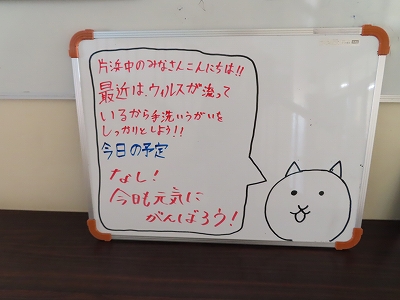 片浜中のみなさんこんにちは!!
最近は、ウィルスが流って
いるから手洗いうがいを
しっかりとしよう!!
今日の予定
なし!
今日も元気に
がんばろう!